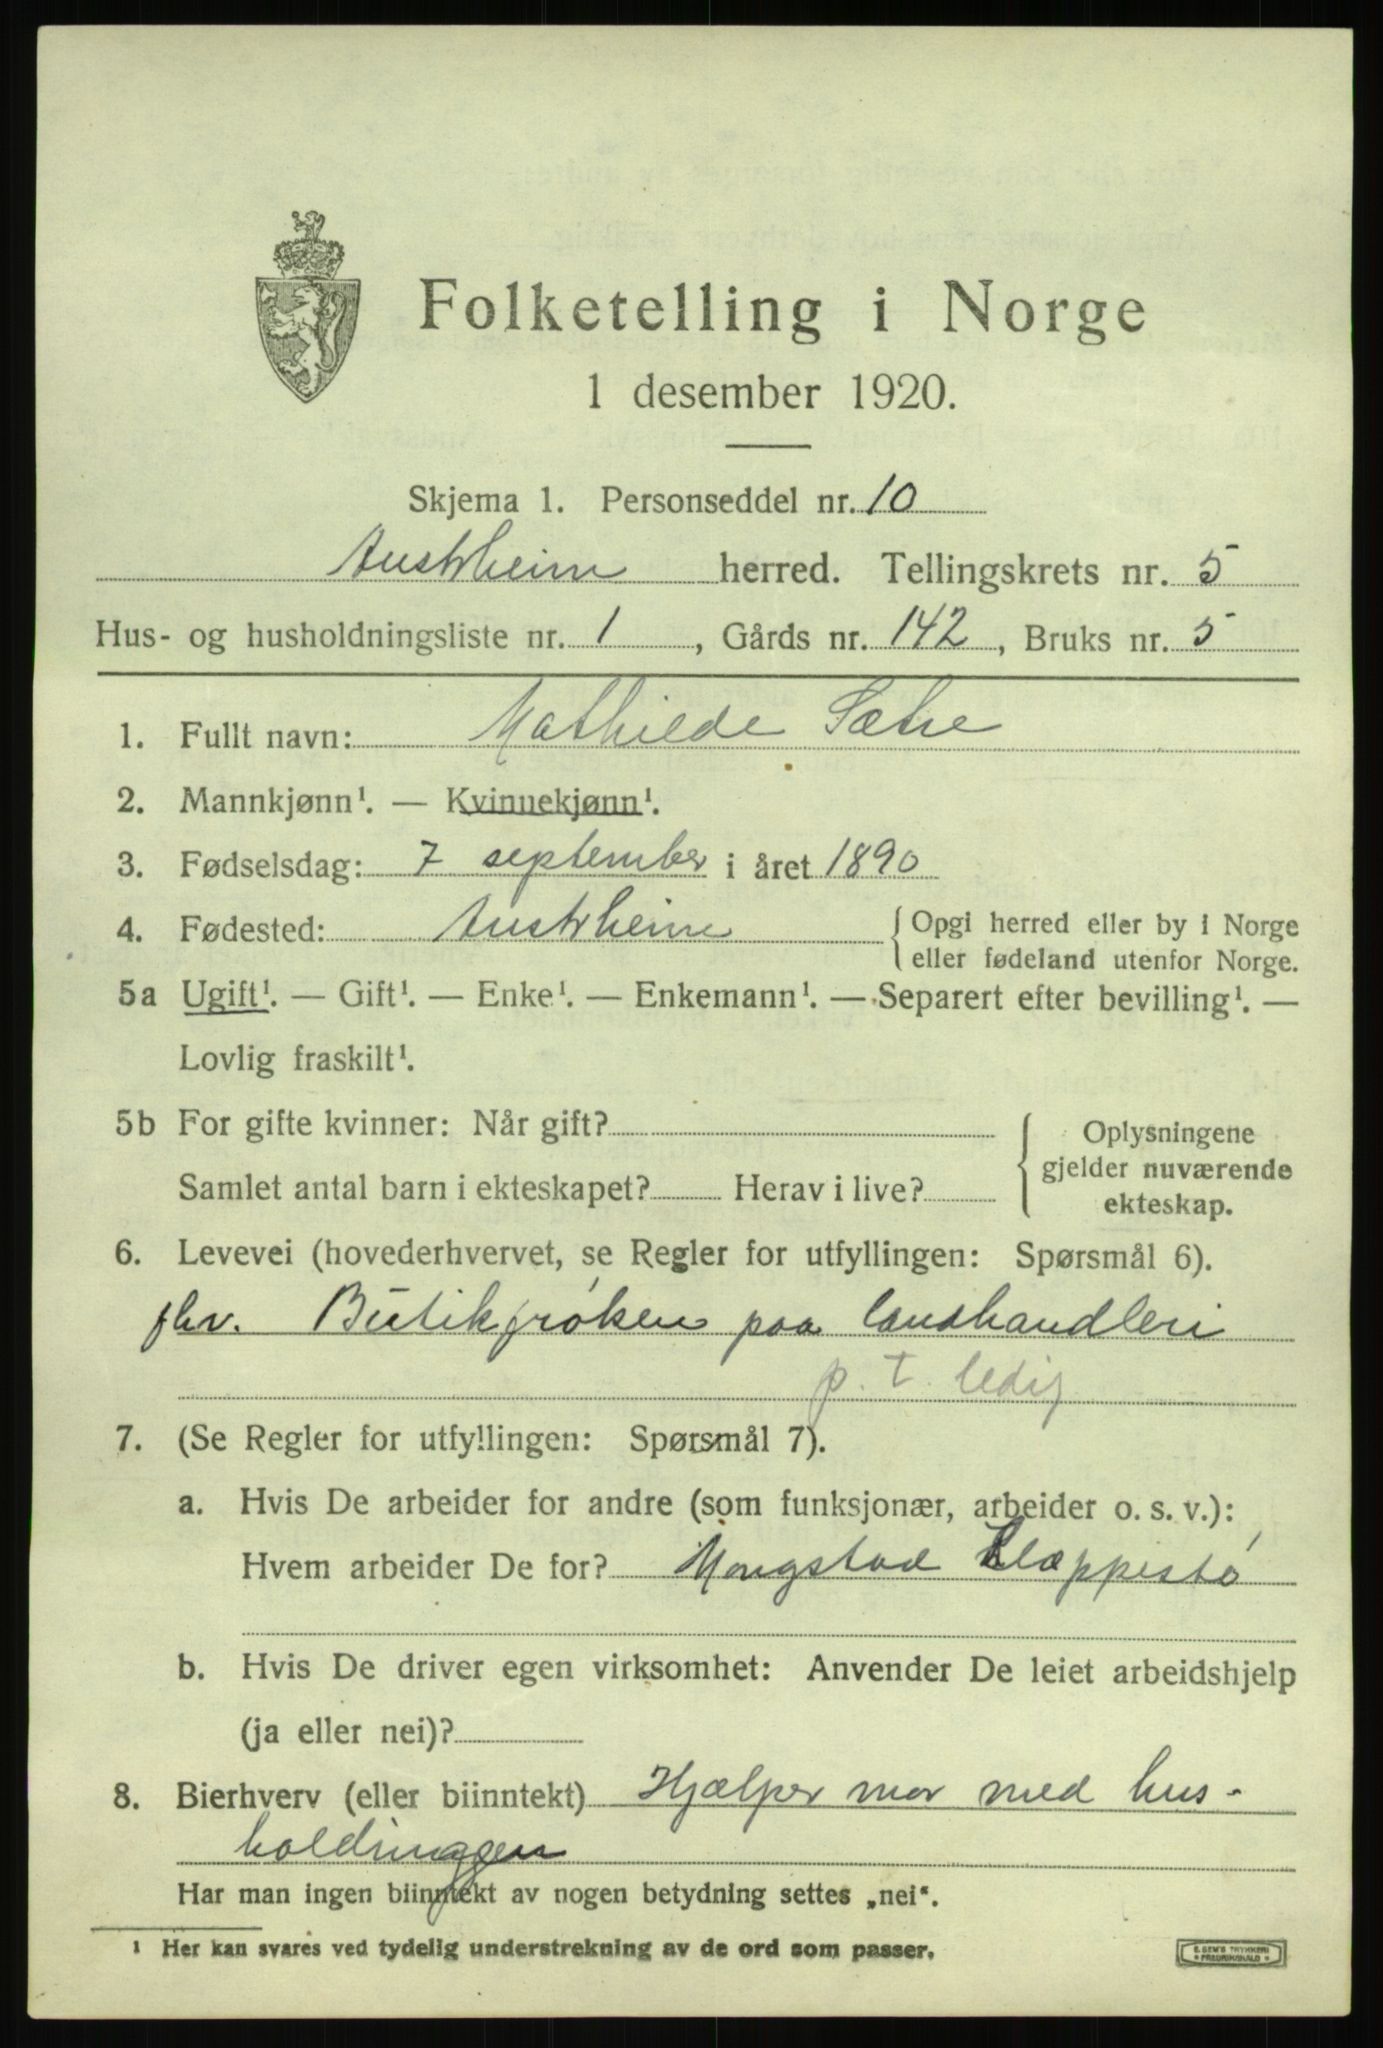 Folketelling i Norge
1 desember 1920.
Skjema 1. Personseddel nr. 10
Austrheim herred. Tellingskrets nr. 5
Hus- og husholdningsliste nr. 1, Gårds nr. 142, Bruks nr. 5
1. Fullt navn: Mathilde Sætre
2. Mannkjønn¹. — Kvinnekjønn¹.
3. Fødselsdag: 7 september i året 1890
4. Fødested: Austrheim { Opgi herred eller by i Norge
eller fødeland utenfor Norge.
5a Ugift¹. — Gift¹. — Enke¹. — Enkemann¹. — Separert efter bevilling¹. —
Lovlig fraskilt¹.
5b For gifte kvinner: Når gift?
Samlet antal barn i ekteskapet? Herav i live?
{ Oplysningene
gjelder nuværende
ekteskap.
6. Levevei (hovederhvervet, se Regler for utfyllingen: Spørsmål 6).
fhv. Butikfrøken paa landhandleri
p. t. ledig
7. (Se Regler for utfyllingen: Spørsmål 7).
a. Hvis De arbeider for andre (som funksjonær, arbeider o. s. v.):
Hvem arbeider De for? Mongstad Klæppestø
b. Hvis De driver egen virksomhet: Anvender De leiet arbeidshjelp
(ja eller nei)?
8. Bierhverv (eller biinntekt) Hjælper mor med hus-
holdninggen
Har man ingen biinntekt av nogen betydning settes „nei“.
¹ Her kan svares ved tydelig understrekning av de ord som passer.
E. SEM'S TRYKKERI
* FREDRIKSHALD *